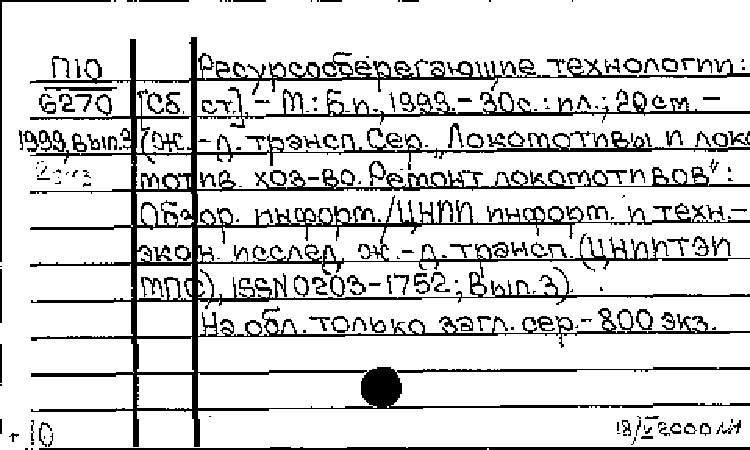 П10 Ресурсосберегающие технологии:
6270 [Сб. ст]. - М.: Б.и., 1999. - 30с.: ил.; 20см. -
1999, вып.3 (Ж.-д. трансп. Сер. „Локомотивы и локо
мотив. хоз-во. Ремонт локомотивов":
Обзор. информ. / ЦНИИ информ. и техн.-
экон. исслед. ж.-д. трансп. (ЦНИИТЭИ
МПС), ISSN 0203-1752; Вып.3).
На обл. только загл. сер. - 800 экз.
+ 10 18/V 2000